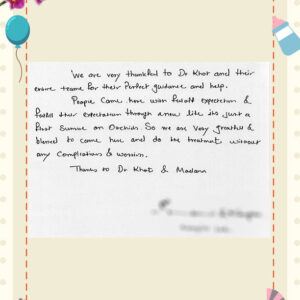 We are very thankful to Dr Khot and their
entire teams for their Perfect guidance and help.
People Come here with full expectation &
their expectation through a new life its just a
So we are very grateful &
blessed to come here and do the treatment without
any Complications & worries.
Thanks to Dr Khot & Madam